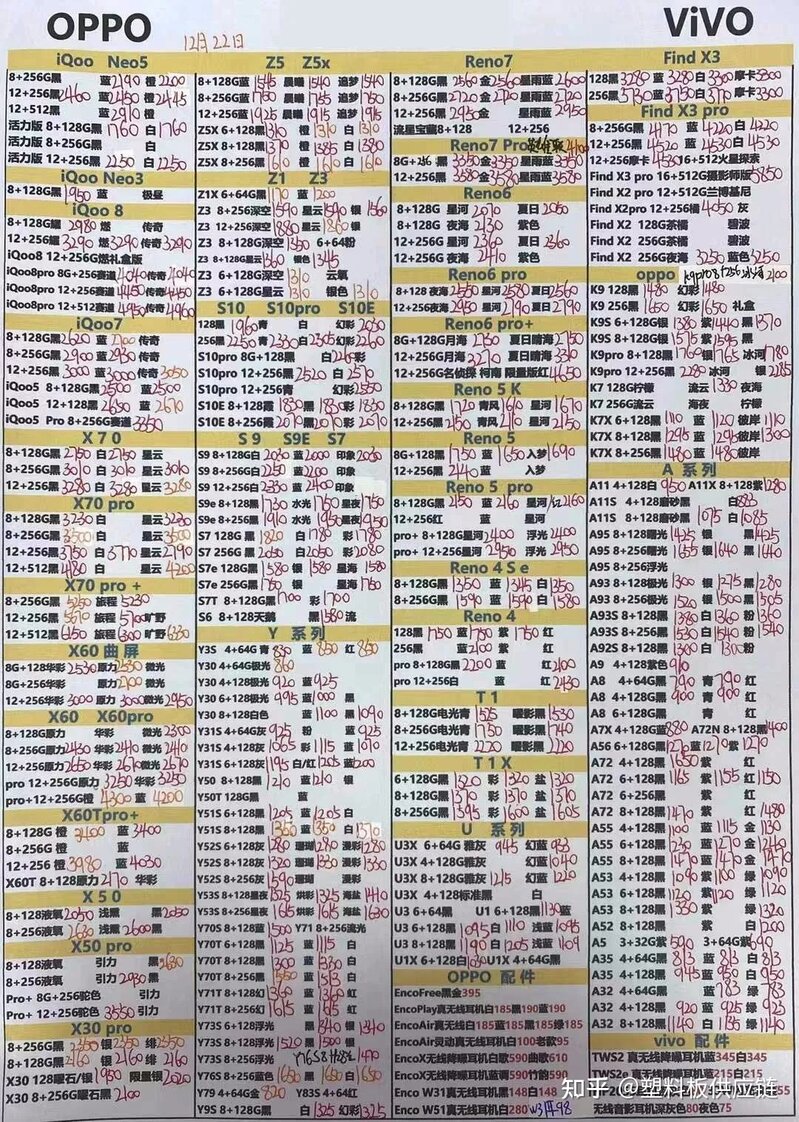 OPPO
ViVO
12月22日
iQoo Neo5
8+256G黑 蓝2190 橙2200
12+256黑2460 蓝2450 橙2445
12+512黑 蓝2910 橙
活力版 8+128G黑1760 白1760
活力版 8+256G黑 白
活力版 12+256黑2250 白2250
iQoo Neo3
8+128G黑1950 蓝 极昼
iQoo 8
8+128G耀2980 燃 传奇
12+256耀3290 燃3290 传奇3290
iQoo8 12+256G燃礼盒版
iQoo8pro 8G+256赛道4040 传奇4040
iQoo8pro 12+256赛道4450 传奇4450
iQoo8pro 12+512赛道4950 传奇4960
iQoo7
8+128G黑2620 蓝2700 传奇
8+256G黑2900 蓝2930 传奇
12+256G黑3000 蓝3000 传奇3050
iQoo5 8+128G黑2500 蓝2500
iQoo5 12+128黑2650 蓝2670
iQoo5 Pro 8+256G赛道3350
X70
8+128G黑2750 白2750 星云
8+256G黑3010 白3010 星云3010
12+256黑3280 白3280 星云3280
X70 pro
8+128G黑3230 白 星云3230
8+256G黑3500 白 星云3500
12+256黑3750 白3770 星云
12+512黑4480 白 星云4200
X70 pro +
8+256G黑5250 旅程5230
12+256黑5670 旅程5710 旷野
12+512黑6150 旅程6300 旷野6330
X60 曲屏
8G+128华彩2530 原力2530 微光
8G+256华彩 原力2700 微光
12+256华彩3000 原力3000 微光2950
X60 X60pro
8+128G原力 华彩 微光2300
8+256G原力2430 华彩2410 微光2410
12+256原力2650 华彩2670 微光2670
pro 12+256G原力3250 华彩3250
pro+12+256G橙4300 蓝4200
X60Tpro+
8+128G 橙3400 蓝3400
8+256G 橙 蓝
12+256 橙3980 蓝4030
X60T 8+128原力2170 华彩
X50
8+128液氧2050 浅黑 黑2050
8+256液氧2630 浅黑2600
X50 pro
8+128液氧 引力 黑2630
8+256液氧 引力2930 黑
Pro+ 8G+256驼色 引力
Pro+ 12+256驼色3550 引力
X30 pro
8+256G黑2350 银2350 绯2350
8+128G黑2160 银2160 绯2160
X30 128曜石/银1950 限量银2020
X30 8+256G曜石黑2100
Z5 Z5x
8+128G蓝1545 晨曦1540 追梦1540
8+256G蓝1750 晨曦1755 追梦1750
12+256蓝1925 晨曦1955 追梦1915
Z5X 6+128黑1310 橙1310 白1310
Z5X 8+128黑1370 橙1385 白1380
Z5X 8+256黑1610 橙1610 白1610
Z1 Z3
Z1X 6+64G黑1170 蓝1200
Z3 8+256深空1590 星云1590 银1560
Z3 12+256深空1880 星云1860 银
Z3 8+128G深空1350 6+64粉
Z3 8+128G星云1360 银色1345
Z3 6+128G深空1310 云氧
Z3 6+128G星云1310 银色1310
S10 S10pro S10E
128黑1960 青 白 幻彩2030
256黑2250 青2330 白2305 幻彩2260
S10pro 8G+128黑 白2260 彩
S10pro 12+256黑2520 白2570
S10pro 12+256青 幻彩2550
S10E 8+128霞1830 黑1850 彩1830
S10E 8+256霞2010 黑2010 彩2070
S9 S9E S7
S9 8+128G白2030 蓝2000 印象2030
S9 8+256G白2250 蓝2200 印象
S9 12+256白2330 蓝2400 印象
S9e 8+128黑1730 水光1750 星夜1750
S9e 8+256黑1910 水光1950 星夜1950
S7 128G 黑1820 白1780 彩1780
S7 256G 黑2050 白2050 彩2080
S7e 128G黑1580 银1580 星海1580
S7e 256G黑1750 银 星海1760
S7T 8+128G黑1700 彩1700
S6 8+128天鹅 黑1580 流
Y 系列
Y3S 4+64G 青830 蓝850 红850
Y30 4+64G极光860
Y30 4+128G极光920 蓝925
Y30 6+128极光995 蓝1000 黑
Y30 8+128白色 蓝1100 黑1090
Y31S 4+64G灰925 粉 蓝925
Y31S 4+128灰1065 彩1115 蓝1070
Y31S 6+128灰1195 白/红1205 蓝1200
Y50 8+128黑1210 蓝1210 银
Y50T 128G黑 蓝
Y51S 6+128黑1205 蓝1205 白
Y51S 8+128黑1360 蓝1350 白1370
Y52S 6+128灰1280 珊瑚1280 漫彩1280
Y52S 8+128灰1320 珊瑚1330 漫彩1330
Y52S 8+256灰1590 珊瑚 漫彩
Y53S 8+128星夜1525 烘彩1325 海盐1410
Y53S 8+256星夜1615 烘彩1615 海盐1630
Y70S 8+128蓝1500 Y71 8+256流光
Y70T 6+128黑1125 蓝1115 白
Y70T 8+128黑1300 蓝1330 白
Y70T 8+256黑1550 蓝1513 白
Y71T 8+128幻1360 蓝1360 红
Y71T 8+256幻1615 蓝1615 红
Y73S 6+128浮光 黑1340 银1340
Y73S 8+128浮光1520 黑1500 银
Y73S 8+256浮光 Y76S 8+128G 1470
Y76S 8+256蓝色1650 黑1650 白1650
Y79 4+64G 金820 Y83S 4+64红
Y9S 8+128G黑 白1325 幻彩1325
Reno7
8+128G黑2560 金2560 星雨蓝2600
8+256G黑2720 金2720 星雨蓝2720
12+256黑2950 金 星雨蓝2950
流星宝藏8+128 12+256
Reno7 Pro
8G+256黑3350 金3350 星雨蓝3350
12+256黑3580 摄影师版3580 星雨蓝3580
Reno6
8+128G 星河2070 夏日2050
8+128G 夜海2130 紫色
12+256G 星河2360 夏日2360
12+256G 夜海2410 紫色
Reno6 pro
8+128 夜海2550 星河2580 夏日2560
12+256夜海2950 星河2790 夏日2790
Reno6 pro+
8G+128G月海2750 夏日晴海2750
12+256G月海3270 夏日晴海3310
12+256G名侦探 柯南 限量版红4650
Reno 5 K
8+128G黑1720 青风1610 星河1670
12+256黑2150 青风2110 星河2150
Reno 5
8G+128G黑1750 蓝1650 入梦1690
12+256黑2440 蓝 入梦
Reno 5 pro
8+128G黑2150 蓝2160 星河/红2160
12+256红 蓝 星河
pro+ 8+128G星河2400 浮光2400
pro+ 12+256星河2950 浮光2950
Reno 4 S e
8+128G黑1350 蓝1345 白1350
8+256G黑1590 蓝1590 白1580
Reno 4
128黑1750 蓝1750 紫1750 红
256黑 蓝2100 紫 红
pro 8+128G黑2200 蓝 红2100
pro 12+256白 蓝 红2430
T1
8+128G电光青1525 曜影黑1530
8+256G电光青1750 曜影黑1740
12+256电光青2220 曜影黑2220
T1X
6+128G黑1320 彩1320 盐1320
8+128G黑1370 彩1370 盐1370
8+256G黑1595 彩1600 盐1605
U 系列
U3X 6+64G 雅灰945 幻蓝933
U3X 4+128G雅灰 幻蓝1040
U3X 6+128G雅灰1215 幻蓝1220
U3X 4+128标准黑 白
U3 6+64黑 U1 6+128黑1130 蓝
U3 6+128黑1095 白1110 浅蓝1095
U3 8+128黑1190 白1205 浅蓝1109
U1X 6+128白1030 U1X 4+64G黑
OPPO 配件
EncoFree黑金395
EncoPlay真无线白185黑190蓝190
EncoAir真无线白185蓝185黑185绿185
EncoAir灵动真无线耳机白100老款95
EncoX无线降噪耳机白歌590曲歌610
EncoX无线降噪耳机蓝590竹韵590
Enco W31真无线耳机白148黑148
Enco W51真无线耳机白280 W31青98
Find X3
128黑3280 蓝3280 白3300 摩卡3300
256黑3730 蓝3750 白3770 摩卡3300
Find X3 pro
8+256G黑4170 蓝4220 白4220
12+256黑4520 蓝4530 白4530
12+256摩卡4530 16+512火星探索
Find X3 pro 16+512G摄影师版5850
Find X2 pro 12+512G兰博基尼
Find X2pro 12+256橘4050 灰
Find X2 128G茶橘 碧波
Find X2 256G茶橘 碧波
Find X2 256G夜海3250 蓝色3250
oppo K9pro 8+256冰河2100
K9 128黑1480 幻彩1480
K9 256黑1650 幻彩1650 礼盒
K9S 6+128G银1380 紫1440 黑1370
K9S 8+128G银1575 紫1595 黑
K9pro 8+128黑1760 银1765 冰河1780
K9pro 12+256黑2280 冰河 银2285
K7 128G柠檬 流云1330 夜海
K7 256G流云 海夜 柠檬
K7X 6+128黑1110 蓝1120 彼岸1110
K7X 8+128黑1295 蓝1295 彼岸1300
K7X 8+256黑1480 蓝1480 彼岸
A 系列
A11 4+128白950 A11X 8+128紫1280
A11S 4+128磨砂黑 白885
A11S 8+128磨砂黑1075 白1085
A95 8+128曙光1425 银 黑1425
A95 8+256曙光1655 银1640 黑1640
A95 8+256浮光
A93 8+128极光1300 银1275 黑1280
A93 8+256极光1520 银1500 黑1505
A93S 8+128黑1380 白1360 粉1360
A93S 8+256黑1530 白1540 粉1540
A92S 8+128黑1300 白1300 粉
A9 4+128紫色910
A8 4+64G黑790 青790 红
A8 4+128G黑900 青900 红
A8 6+128G黑 青 红
A7X 4+128G蓝880 A72N 8+128黑1400
A56 6+128G黑1270 蓝1270 紫1270
A72 4+128黑1650 紫 红
A72 6+128黑1165 紫1155 红1150
A72 6+256黑 紫 红
A72 8+128黑1470 紫 红1480
A55 4+128黑1100 蓝1115 金1130
A55 6+128黑1230 蓝1270 金1240
A55 8+128黑1470 蓝1470 金1470
A53 4+128黑1090 紫1100 绿1090
A53 6+128黑1120 紫1120 绿1120
A53 8+128黑1330 紫 绿1320
A52 8+128黑 紫 白1200
A5 3+32G紫590 3+64G紫690
A35 4+64G黑813 蓝813 白813
A35 4+128黑945 蓝950 白950
A32 4+64G黑 蓝783 绿783
A32 4+128黑920 蓝925 绿925
A32 8+128黑1140 白1135 绿1140
vivo 配件
TWS2 真无线降噪耳机蓝345白345
TWS2e 真无线降噪耳机蓝215白215
无线音影耳机深灰色80夜色75
知乎 @塑料板供应链